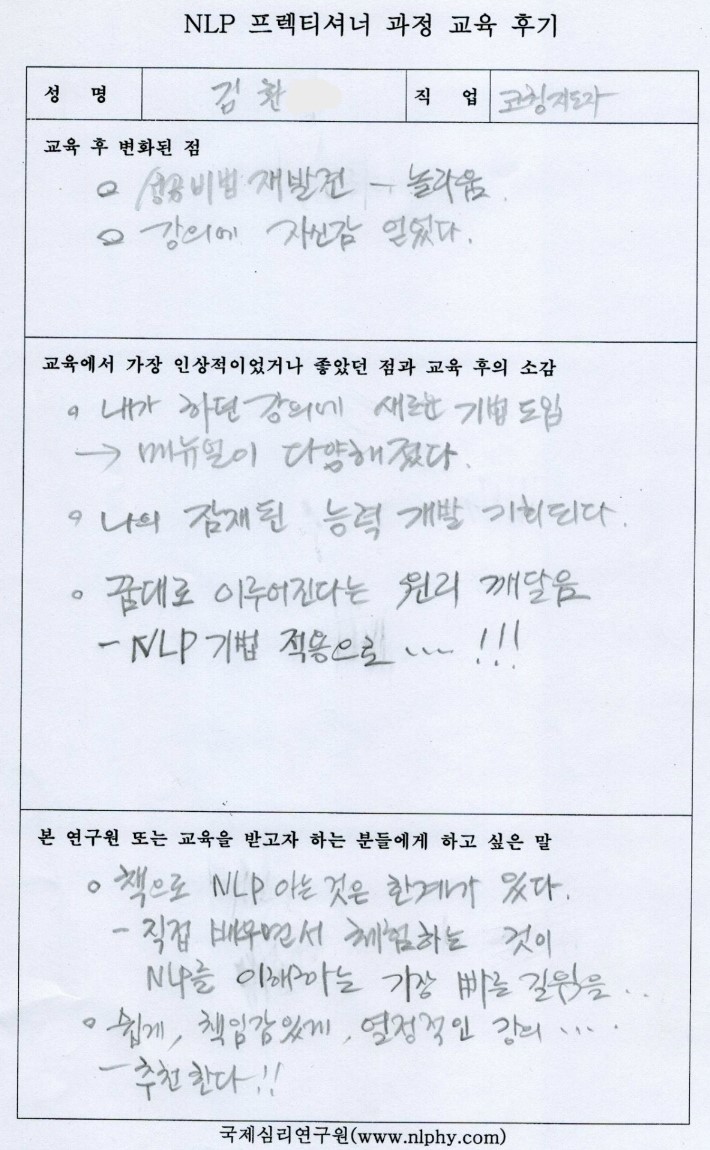 NLP 프렉티셔너 과정 교육 후기
성 명 김환 직 업 코칭지도자
교육 후 변화된 점
o 성공비법 재발견 - 놀라움.
o 강의에 자신감 얻었다.
교육에서 가장 인상적이었거나 좋았던 점과 교육 후의 소감
o 내가 하던 강의에 새로운 기법 도입
→ 메뉴얼이 다양해졌다.
o 나의 잠재된 능력 개발 기회되다.
o 꿈대로 이루어진다는 원리 깨달음
- NLP 기법 적용으로 ... !!!
본 연구원 또는 교육을 받고자 하는 분들에게 하고 싶은 말
o 책으로 NLP 아는것은 한계가 있다.
- 직접 배우면서 체험하는 것이
NLP를 이해하는 가장 빠른 길임을 ..
o 쉽게, 책임감있게, 열정적인 강의 ....
- 추천한다!!
국제심리연구원(www.nlphy.com)